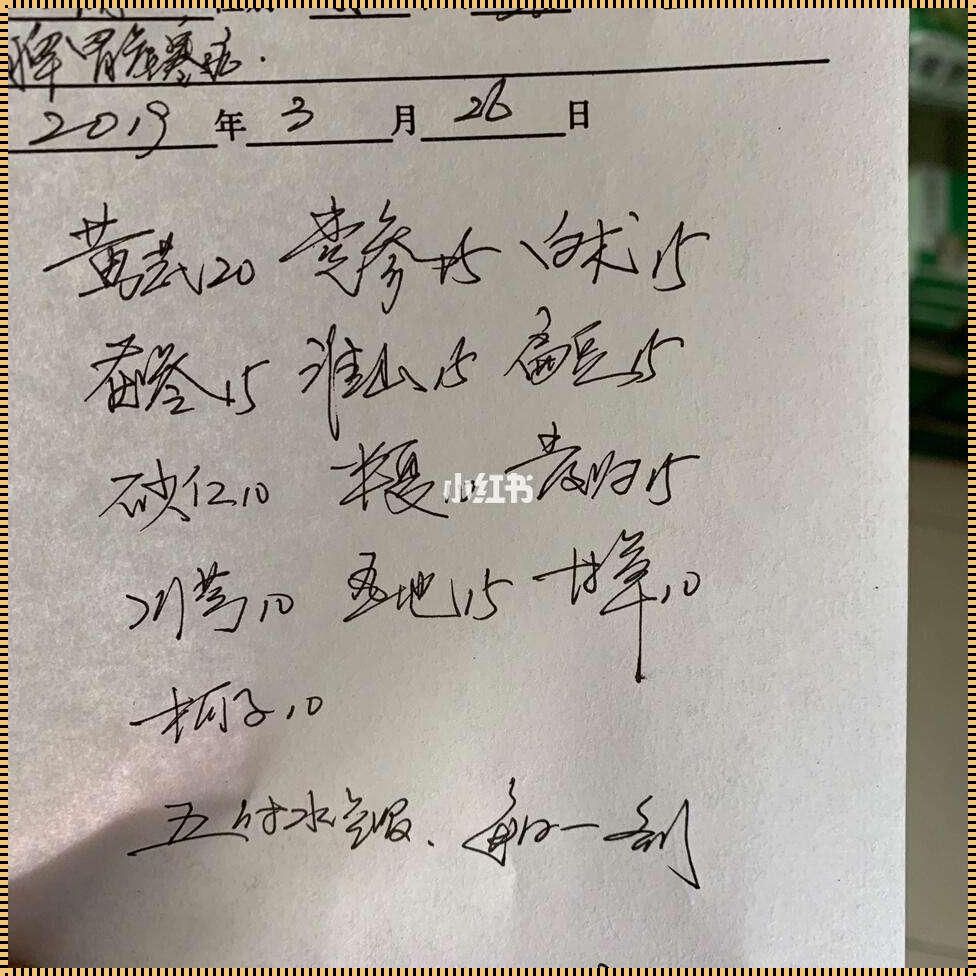 脾胃虚寒症.
2019年3月26日
黄芪20 党参15 白术15
茯苓15 淮山15 扁豆15
砂仁10 半夏10 当归15
川芎10 熟地15 甘草10
枸子10
五付水煎服. 每日一剂
小红书